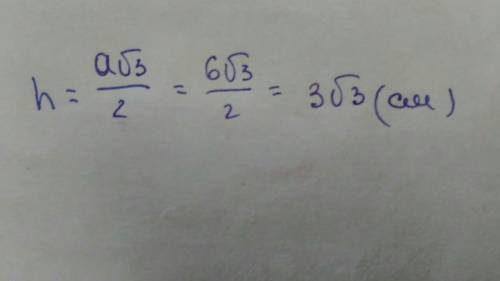 h = a√3/2 = 6√3/2 = 3√3 (см)